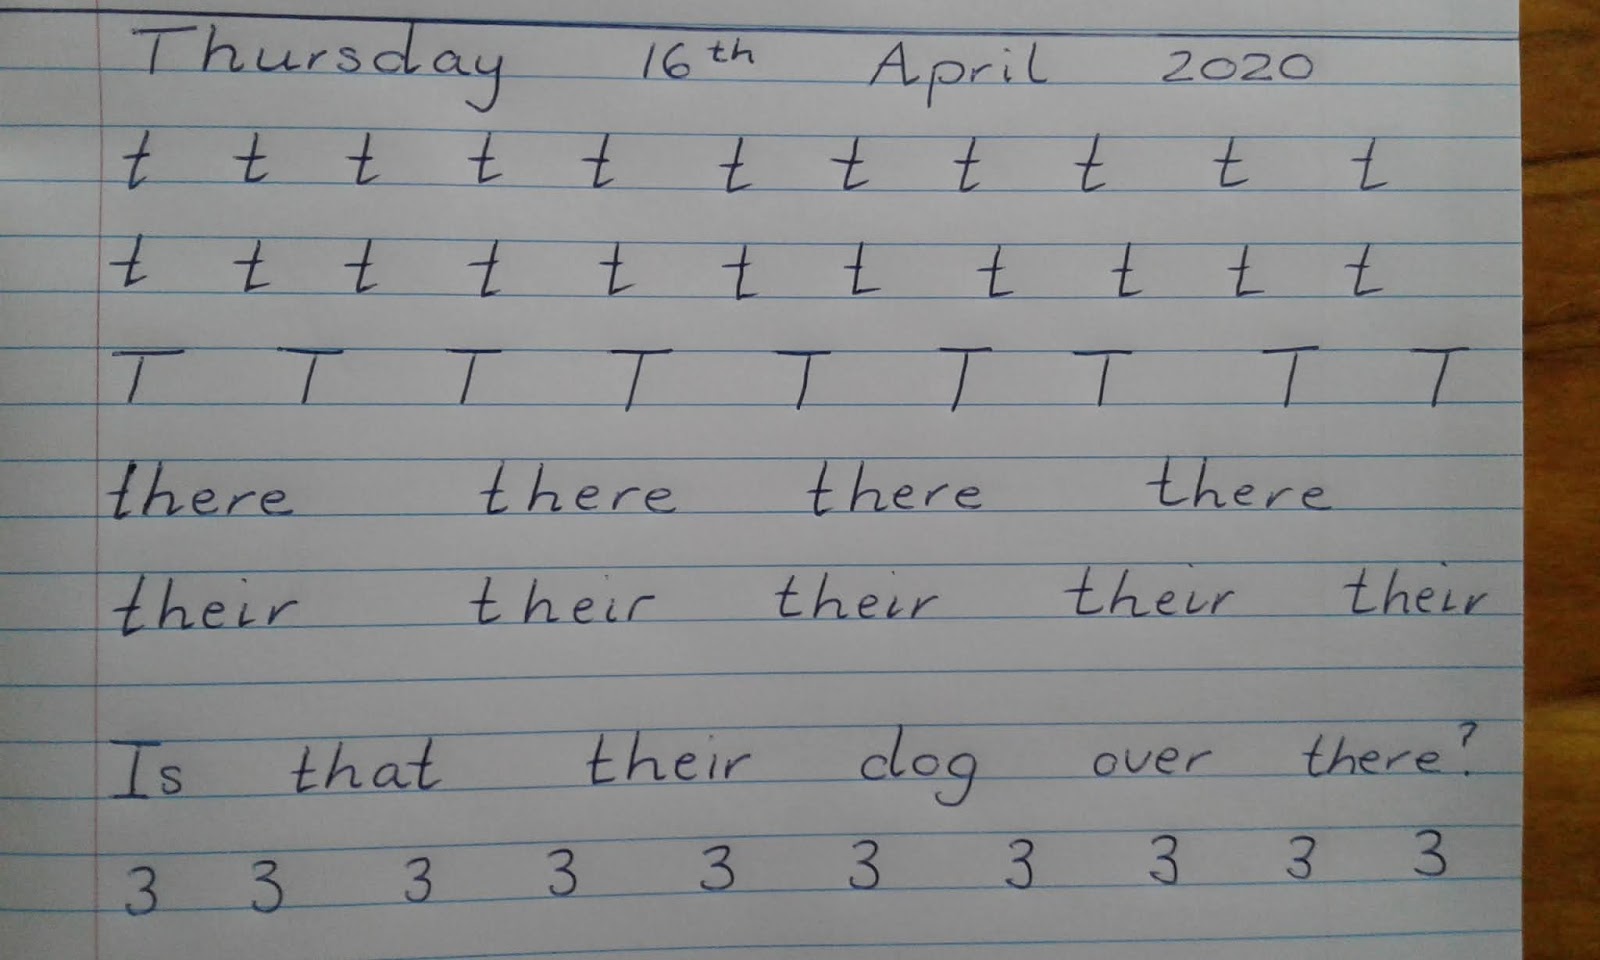 Thursday 16th April 2020
t t t t t t t t t t t
t t t t t t t t t t t
T T T T T T T T T
there there there there
their their their their their
Is that their dog over there?
3 3 3 3 3 3 3 3 3 3